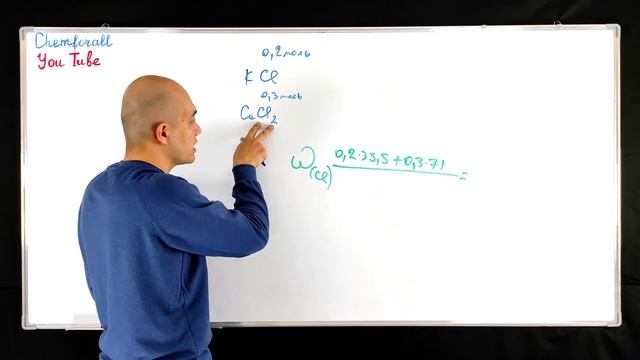 Chemforall
You Tube
0,2 моль
KCl
0,3 моль
CaCl2
ω(Cl) 0,2·35,5+0,3·71 =